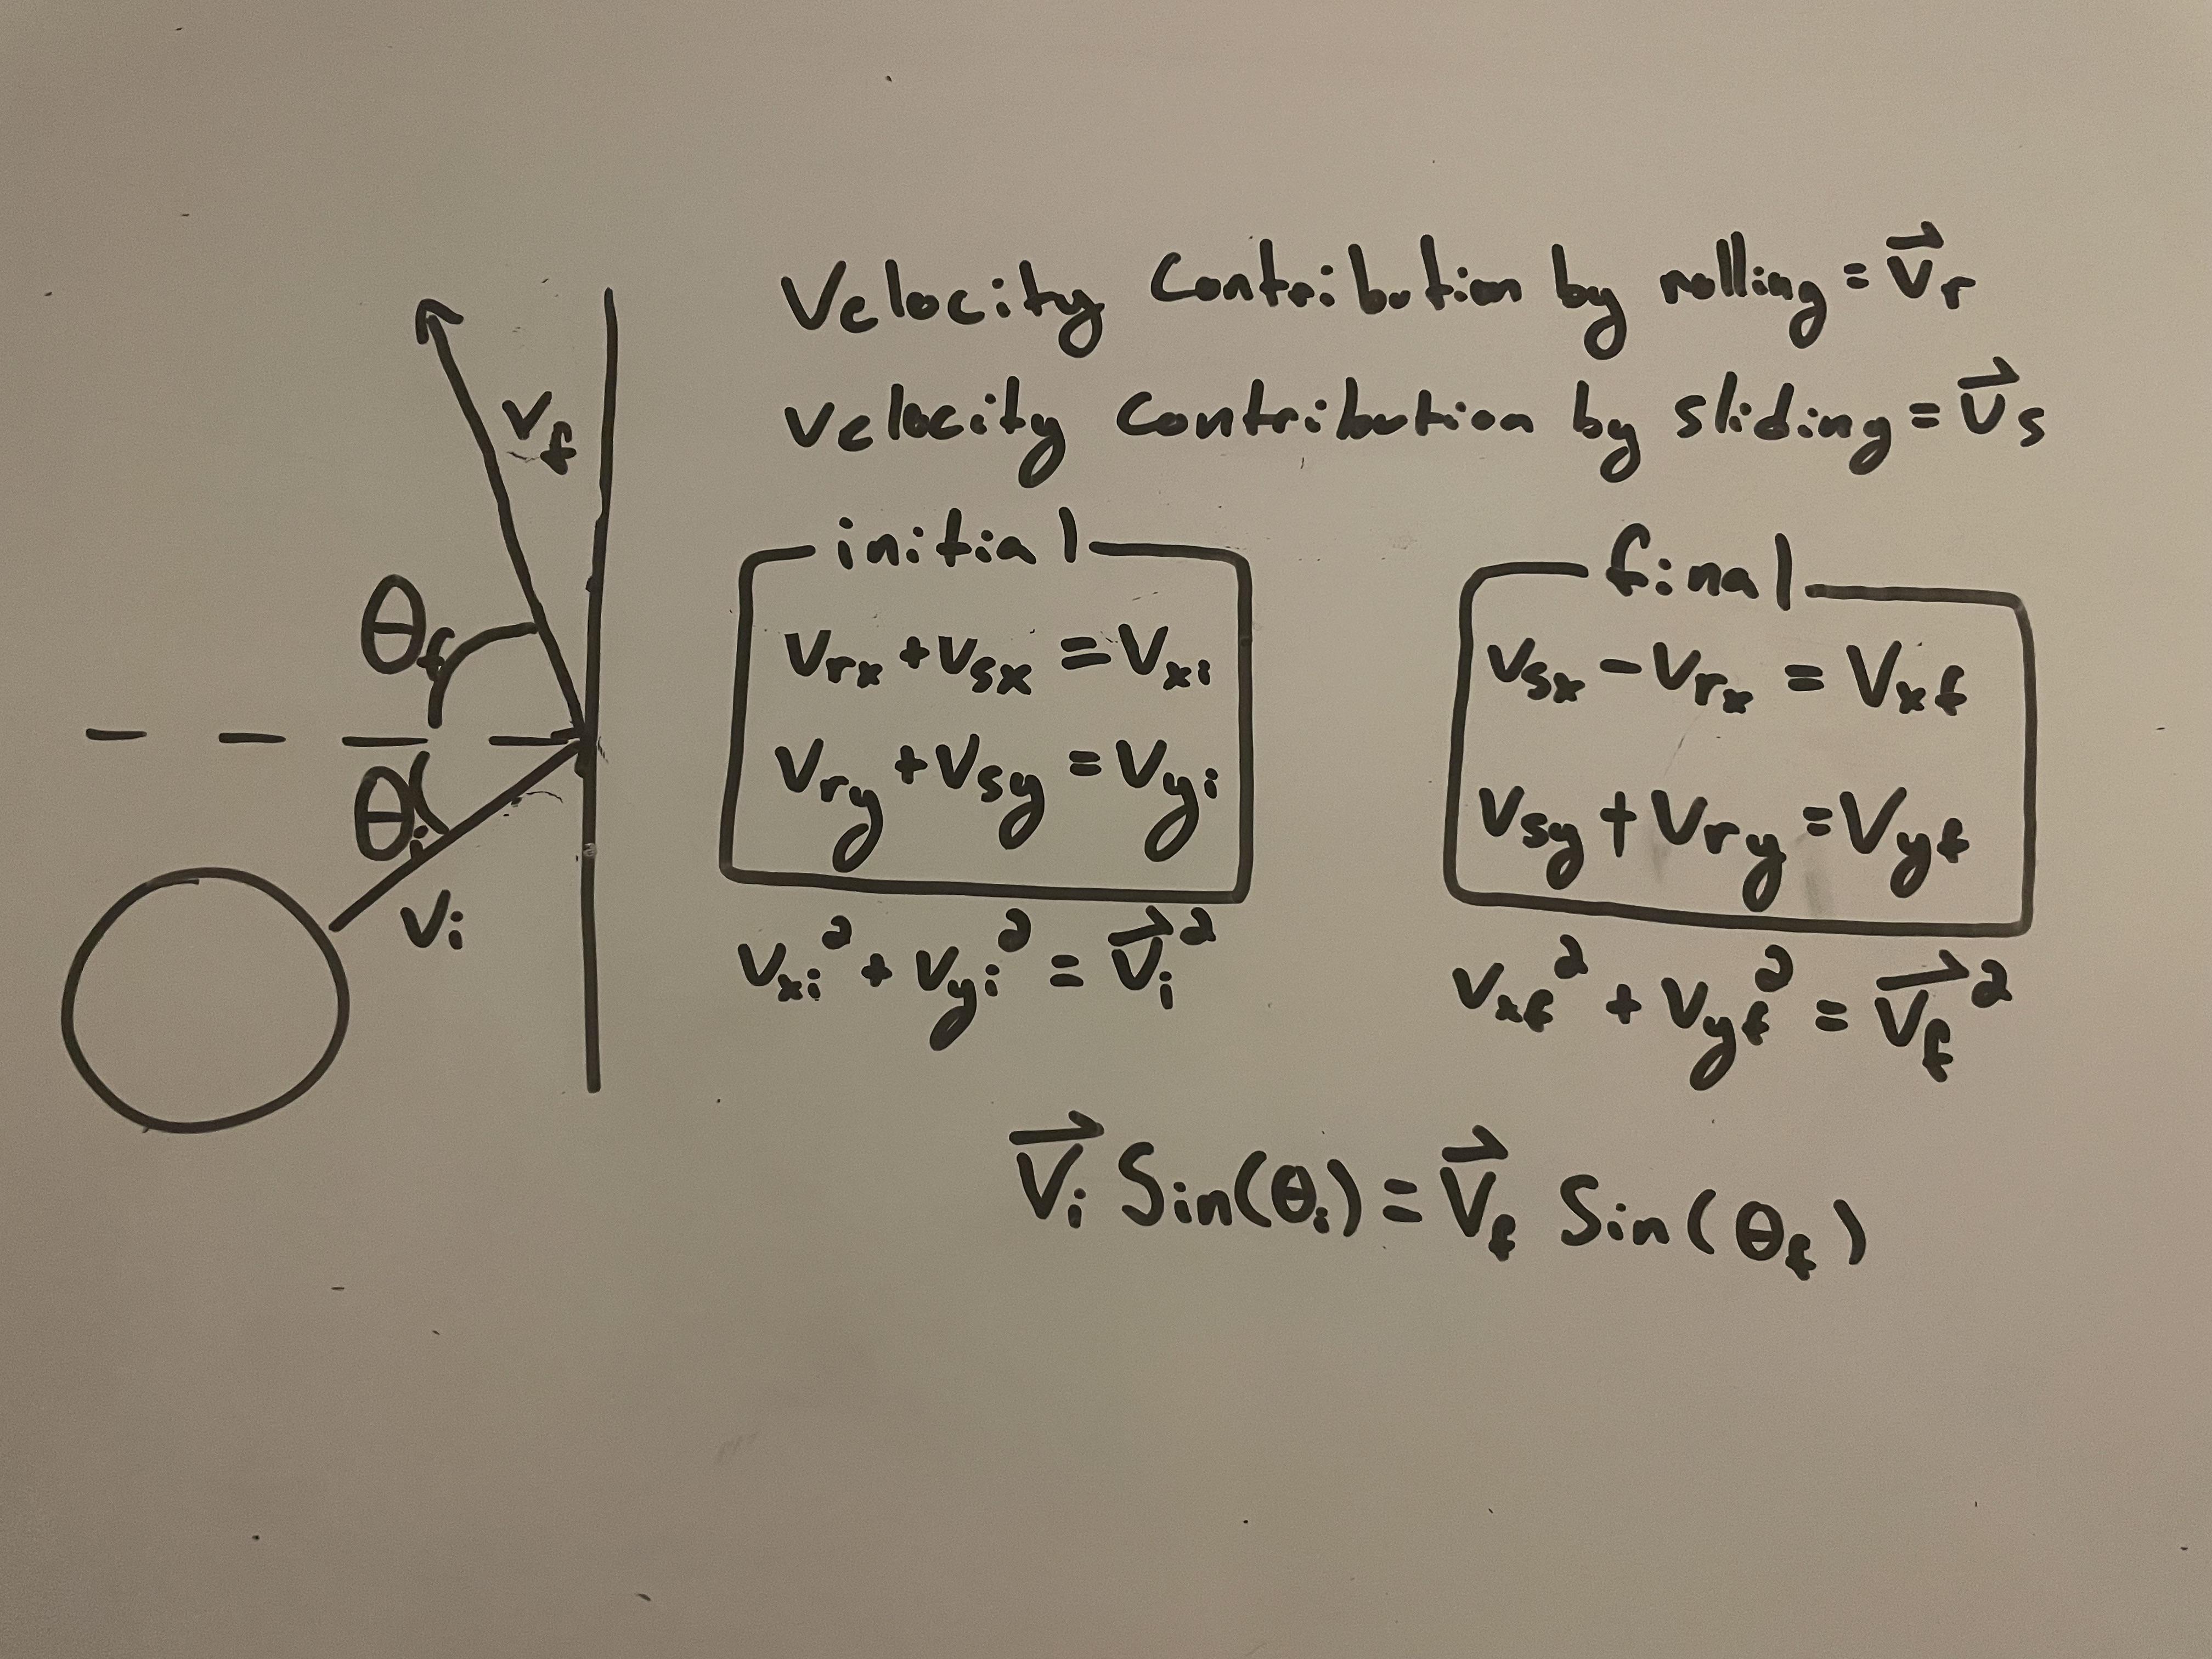 Velocity Contribution by rolling = v⃗r
velocity contribution by sliding = v⃗s
vf
θf
θi
vi
initial
vrx + vsx = vxi
vry + vsy = vyi
vxi² + vyi² = v⃗i²
final
vsx - vrx = vxf
vsy + vry = vyf
vxf² + vyf² = v⃗f²
v⃗i Sin(θi) = v⃗f Sin(θf)